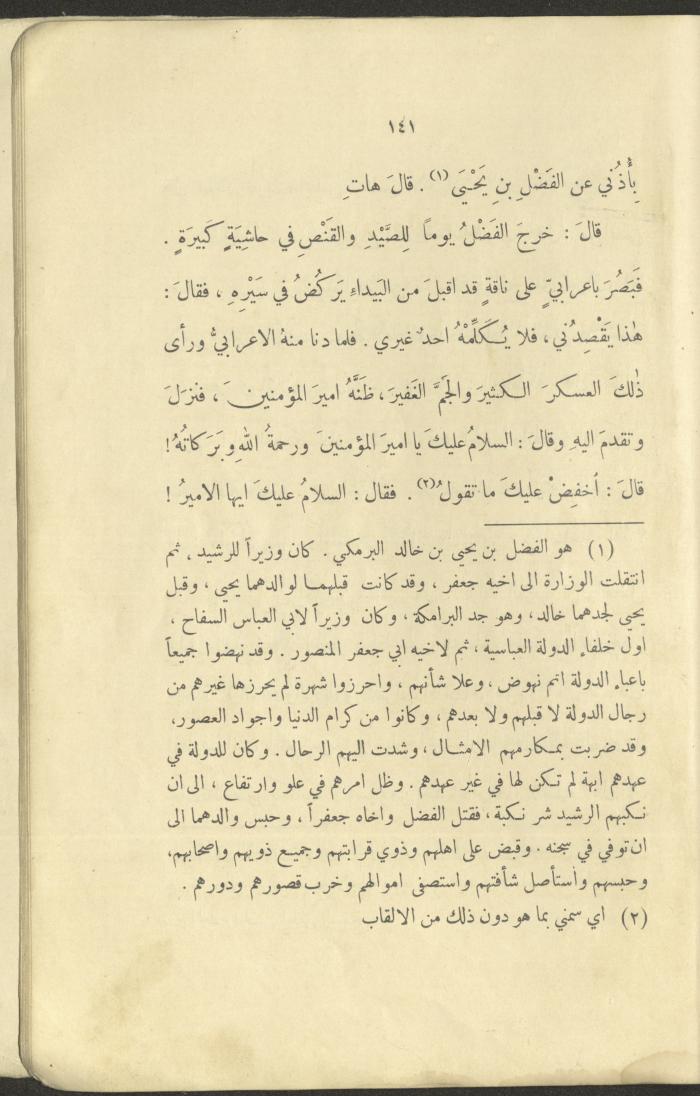 ١٤١
بِأُذُنِي عن الفَضْلِ بنِ يَحْيَى (١) . قالَ هاتِ
قالَ : خرجَ الفَضْلُ يوماً لِلصَّيْدِ والقَنْصِ في حاشِيَةٍ كَبيرَةٍ .
فَبَصُرَ باعرابيٍّ على ناقةٍ قد اقبلَ من البَيداءِ يَركُضُ في سَيْرِهِ ، فقالَ :
هٰذا يَقْصِدُني ، فلا يُكَلِّمْهُ احدٌ غيري . فلما دنا منهُ الاعرابيُّ ورأى
ذٰلكَ العسكرَ الكثيرَ والجَمَّ الغَفيرَ ، ظَنَّهُ اميرَ المؤمنينَ ، فنزلَ
وتقدمَ اليهِ وقالَ : السلامُ عليكَ يا اميرَ المؤمنينَ ورحمةُ اللهِ وبَرَكاتُهُ !
قالَ : اخفِضْ عليكَ ما تقولُ (٢) . فقال : السلامُ عليكَ ايها الاميرُ !
(١) هو الفضل بن يحيى بن خالد البرمكي . كان وزيراً للرشيد ، ثم
انتقلت الوزارة الى اخيه جعفر ، وقد كانت قبلهما لوالدهما يحيى ، وقبل
يحيى لجدهما خالد ، وهو جد البرامكة ، وكان وزيراً لابي العباس السفاح ،
اول خلفاء الدولة العباسية ، ثم لاخيه ابي جعفر المنصور . وقد نهضوا جميعاً
باعباء الدولة اتم نهوض ، وعلا شأنهم ، واحرزوا شهرة لم يحرزها غيرهم من
رجال الدولة لا قبلهم ولا بعدهم ، وكانوا من كرام الدنيا واجواد العصور ،
وقد ضربت بمكارمهم الامثال ، وشدت اليهم الرحال . وكان للدولة في
عهدهم ابهة لم تكن لها في غير عهدهم . وظل امرهم في علو وارتفاع ، الى ان
نكبهم الرشيد شر نكبة ، فقتل الفضل واخاه جعفراً ، وحبس والدهما الى
ان توفي في سجنه . وقبض على اهلهم وذوي قرابتهم وجميع ذويهم واصحابهم ،
وحبسهم واستأصل شأفتهم واستصفى اموالهم وخرب قصورهم ودورهم .
(٢) اي سمني بما هو دون ذلك من الالقاب